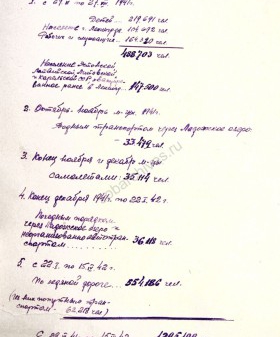 1. с 29.VI по 27.VIII 1941г.
Детей... 219 691 чел.
Население г. Ленинграда 104 692 чел.
Рабочих и служащих 164 320 чел.
488 703 чел.
Население Эстонской
Латвийской, Литовской
и Карельской ССР, эвакуиро-
ванное ранее в Ленингр. 147 500 чел.
2. Октябрь-ноябрь м-цы 1941г.
Водным транспортом через Ладожское озеро
- 33 479 чел.
3. Конец ноября и декабрь м-цы
самолетами: 35 114 чел.
4. Конец декабря 1941г по 22.I.42г.
Походным порядком
через Ладожское озеро и
неорганизованно автотран-
спортом.... 36 118 чел.
5. с 22.I. по 15.IV 42г.
По ледяной дороге.... 554 186 чел.
(Из них попутным тран-
спортом - чел)